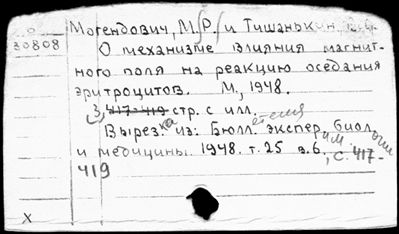 30808
Могендович, М.Р. и Тишанькин,
О механизме влияния магнит-
ного поля на реакцию оседания
эритроцитов. М., 1948.
3, 417-419 стр. с илл.
Вырезка из: Бюлл. экспер. биологии
и медицины. 1948. т. 25 в. 6, с. 417-
419
X